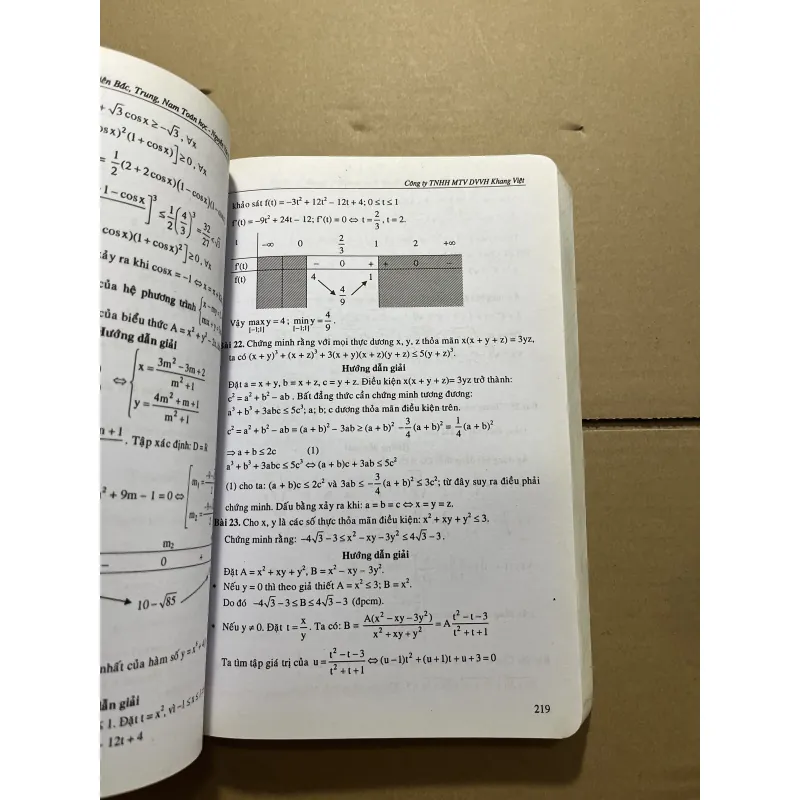 ên Bắc, Trung, Nam Toán học - Nguyễn
+ √3cosx ≥ -√3, ∀x
osx)²(1+cosx)] ≥ 0, ∀x
= 1/2(2+2cosx)(1-cosx)(1-cosx)
1-cosx]³ ≤ 1/2(4/3)³ = 32/27 < √3
cosx)(1+cosx)²] ≥ 0, ∀x
ảy ra khi cosx = -1 ⇔ x = π
của hệ phương trình {x - my
của biểu thức A = x² + y² - 2x
Hướng dẫn giải
⇔ {x = (3m² - 3m + 2)/(m² + 1)
y = (4m² + m + 1)/(m² + 1)
m + 1. Tập xác định: D = R
² + 9m - 1 = 0 ⇔ [m₁ =
m₂ =
m₂
- 0 +
10 - √85
nhất của hàm số y = x⁶ + 4(
dẫn giải
≤ 1. Đặt t = x², vì -1 ≤ x ≤ 1
- 12t + 4
Công ty TNHH MTV DVVH Khang Việt
khảo sát f(t) = -3t³ + 12t² - 12t + 4; 0 ≤ t ≤ 1
f'(t) = -9t² + 24t - 12; f'(t) = 0 ⇔ t = 2/3, t = 2.
t -∞ 0 2/3 1 2 +∞
f'(t) - 0 + + 0 -
f(t) 4 ↘ 4/9 ↗ 1
Vậy max y = 4; min y = 4/9.
[-1;1] [-1;1]
Bài 22. Chứng minh rằng với mọi thực dương x, y, z thỏa mãn x(x + y + z) = 3yz,
ta có (x + y)³ + (x + z)³ + 3(x + y)(x + z)(y + z) ≤ 5(y + z)³.
Hướng dẫn giải
Đặt a = x + y, b = x + z, c = y + z. Điều kiện x(x + y + z)= 3yz trở thành:
c² = a² + b² - ab . Bất đẳng thức cần chứng minh tương đương:
a³ + b³ + 3abc ≤ 5c³; a; b; c dương thỏa mãn điều kiện trên.
c² = a² + b² - ab = (a + b)² - 3ab ≥ (a + b)² - 3/4(a + b)² = 1/4(a + b)²
⇒ a + b ≤ 2c (1)
a³ + b³ + 3abc ≤ 5c³ ⇔ (a + b)c + 3ab ≤ 5c²
(1) cho ta: (a + b)c ≤ 2c² và 3ab ≤ -3/4(a + b)² ≤ 3c²; từ đây suy ra điều phải
chứng minh. Dấu bằng xảy ra khi: a = b = c ⇔ x = y = z.
Bài 23. Cho x, y là các số thực thỏa mãn điều kiện: x² + xy + y² ≤ 3.
Chứng minh rằng: -4√3 - 3 ≤ x² - xy - 3y² ≤ 4√3 - 3.
Hướng dẫn giải
Đặt A = x² + xy + y², B = x² - xy - 3y².
• Nếu y = 0 thì theo giả thiết A = x² ≤ 3; B = x².
Do đó -4√3 - 3 ≤ B ≤ 4√3 - 3 (đpcm).
• Nếu y ≠ 0. Đặt t = x/y. Ta có: B = A(x² - xy - 3y²)/(x² + xy + y²) = A(t² - t - 3)/(t² + t + 1)
Ta tìm tập giá trị của u = (t² - t - 3)/(t² + t + 1) ⇔ (u - 1)t² + (u + 1)t + u + 3 = 0
219